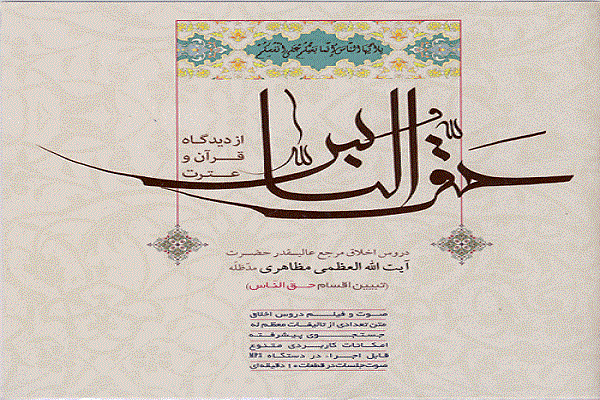 یا أیها الناس إنما بغیکم علی أنفسکم
حق الله و حق الناس
از دیدگاه
قرآن و
عترت
دروس اخلاق مرجع عالیقدر حضرت
آیت الله العظمی مظاهری مدّظلّه
(تبیین اقسام حق الناس)
صوت و فیلم دروس اخلاق
متن تعدادی از تالیفات معظم له
جستجوی پیشرفته
امکانات کاربردی متنوع
قابل اجراء در دستگاه MP3
صوت جلسات در قطعات ۱۰ دقیقه‌ای